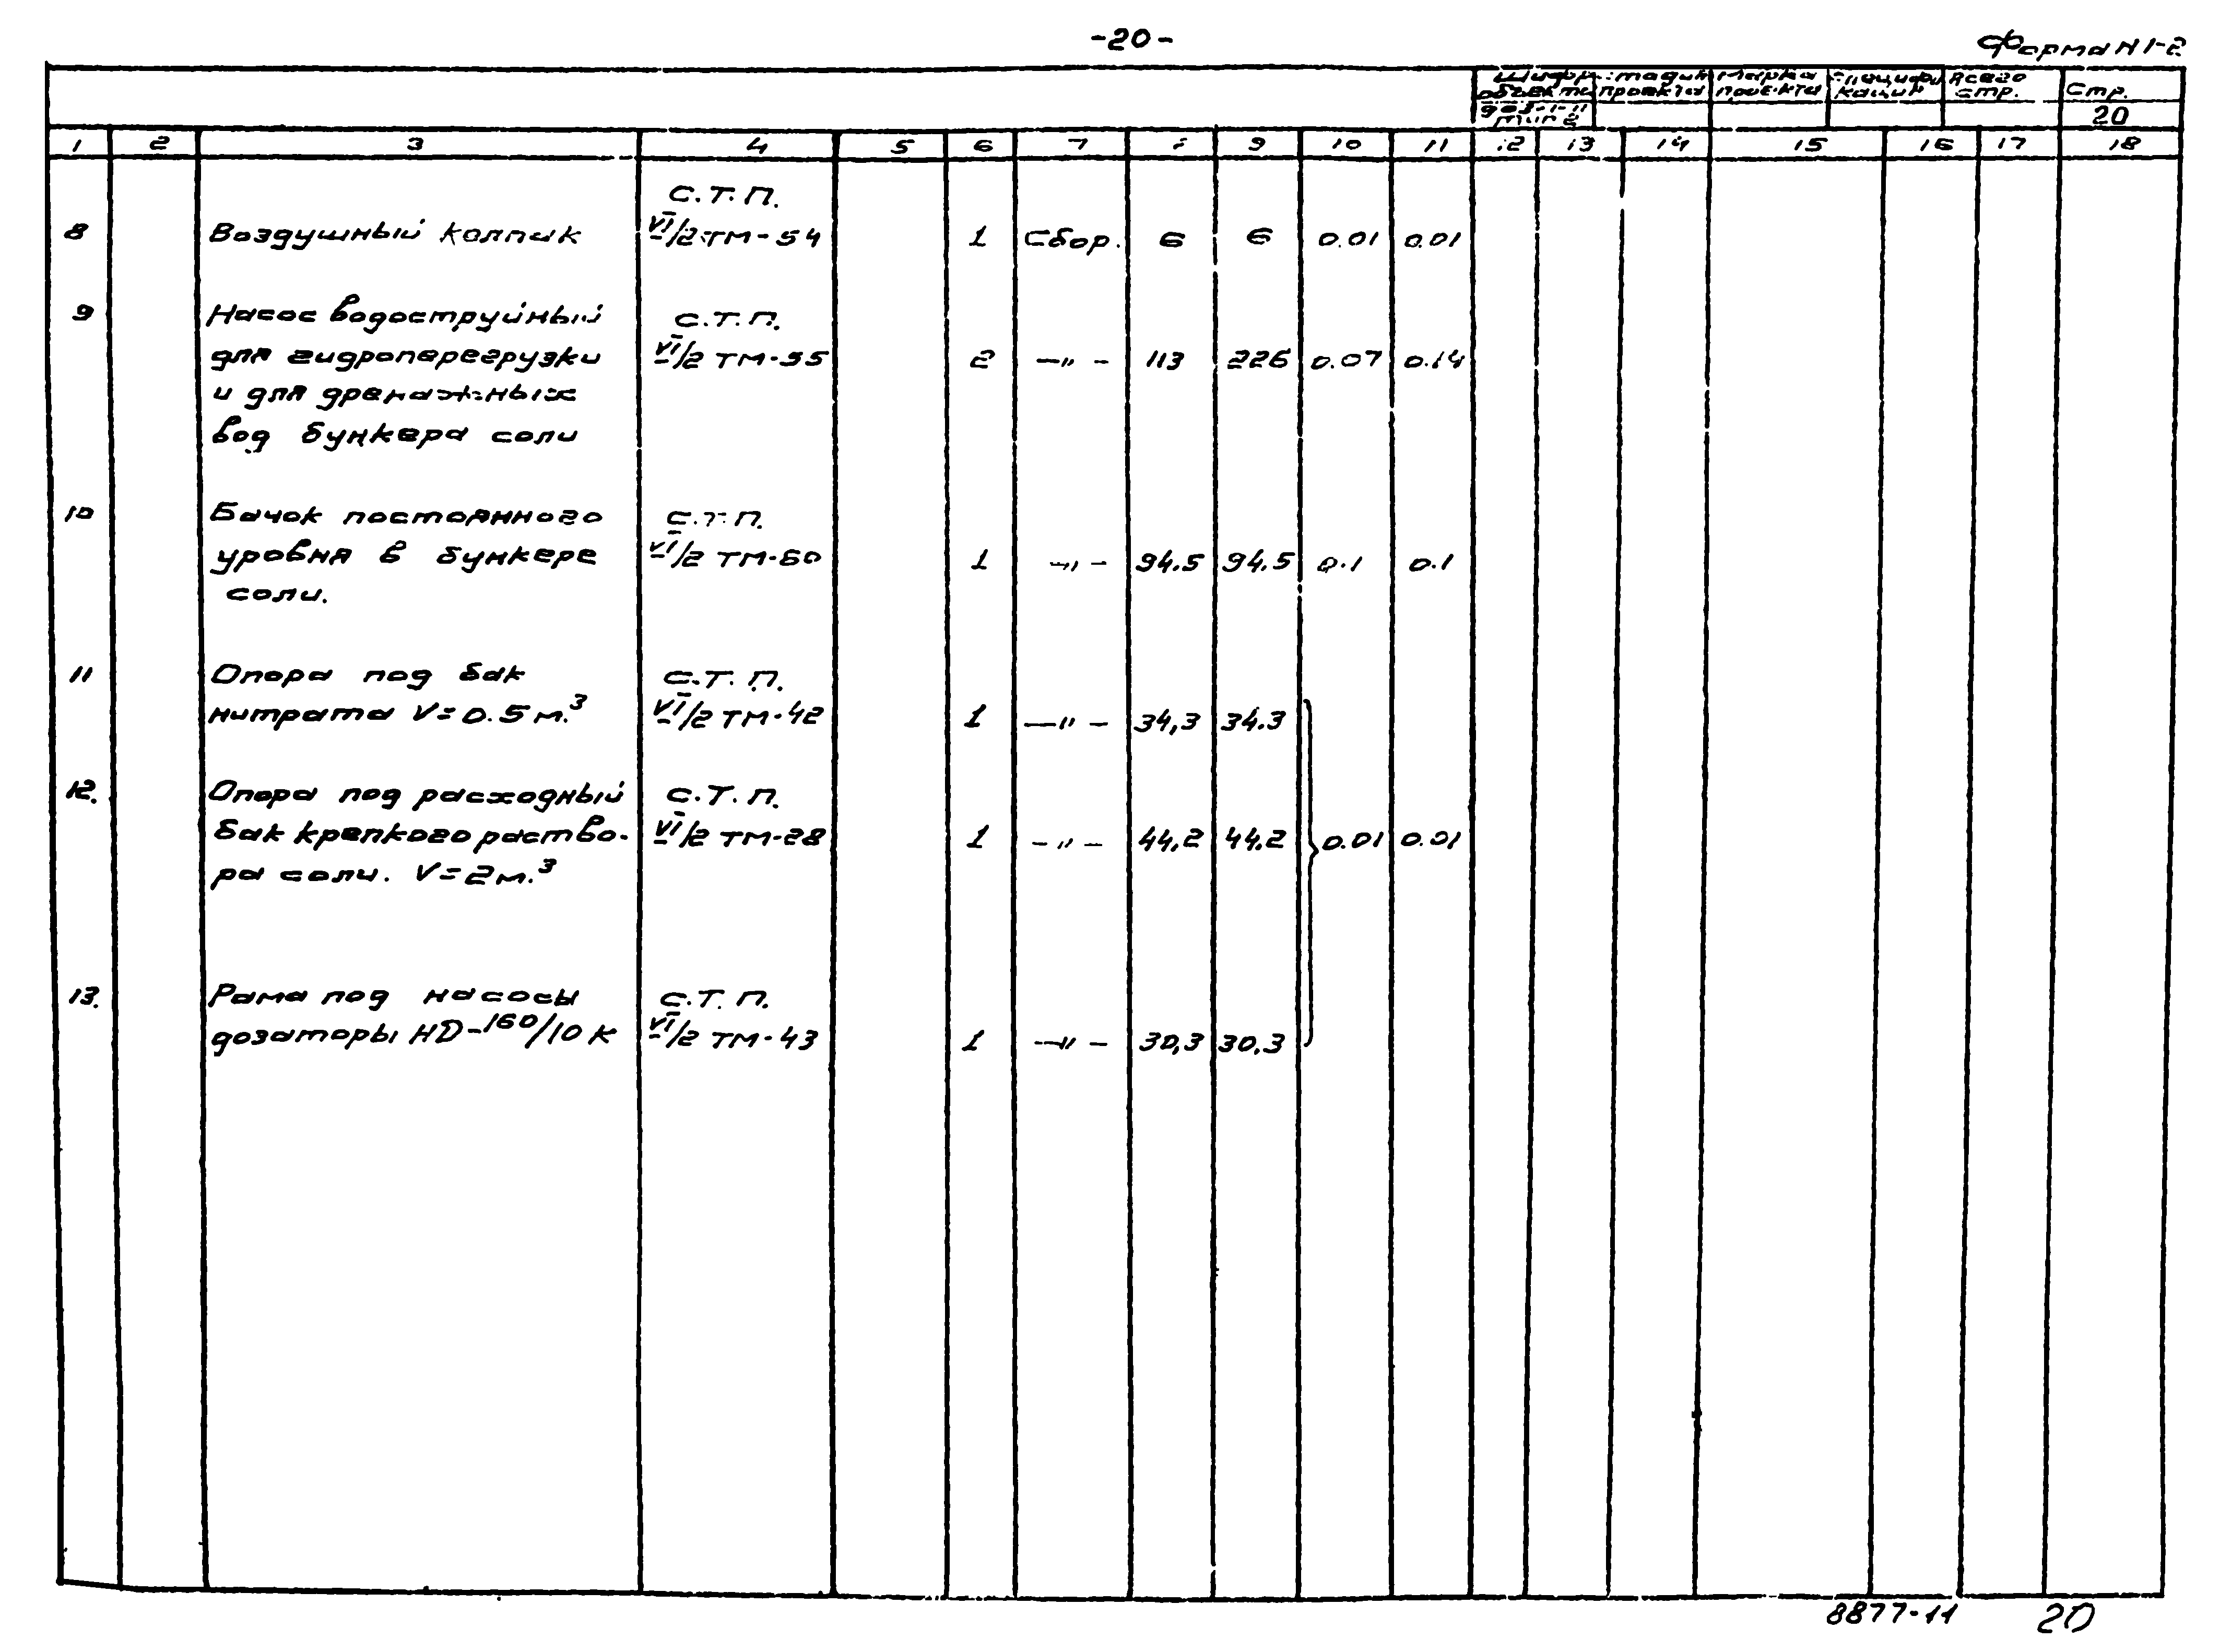 -20-
Форма N 1-2
Шифр объекта стадия проекта Марка проекта Специфи кации Всего стр. Стр.
тип 2 20
1 2 3 4 5 6 7 8 9 10 11 12 13 14 15 16 17 18
С.Т.П.
8 Воздушный колпак VI/2 ТМ-54 1 Сбор. 6 6 0.01 0.01
9 Насос водоструйный С.Т.П.
для гидроперегрузки VI/2 ТМ-55 2 -"- 113 226 0.07 0.14
и для дренажных
вод бункера соли
10 Бачок постоянного С.Т.П.
уровня в бункере VI/2 ТМ-60 1 -"- 94.5 94.5 0.1 0.1
соли.
11 Опора под бак С.Т.П.
нитрата V=0.5 м.³ VI/2 ТМ-42 1 -"- 34,3 34.3
12. Опора под расходный С.Т.П.
бак крепкого раство- VI/2 ТМ-28 1 -"- 44,2 44.2 0.01 0.01
ра соли. V=2м.³
13. Рама под насосы С.Т.П.
дозаторы НD-160/10 К VI/2 ТМ-43 1 -"- 30,3 30.3
8877-11 20